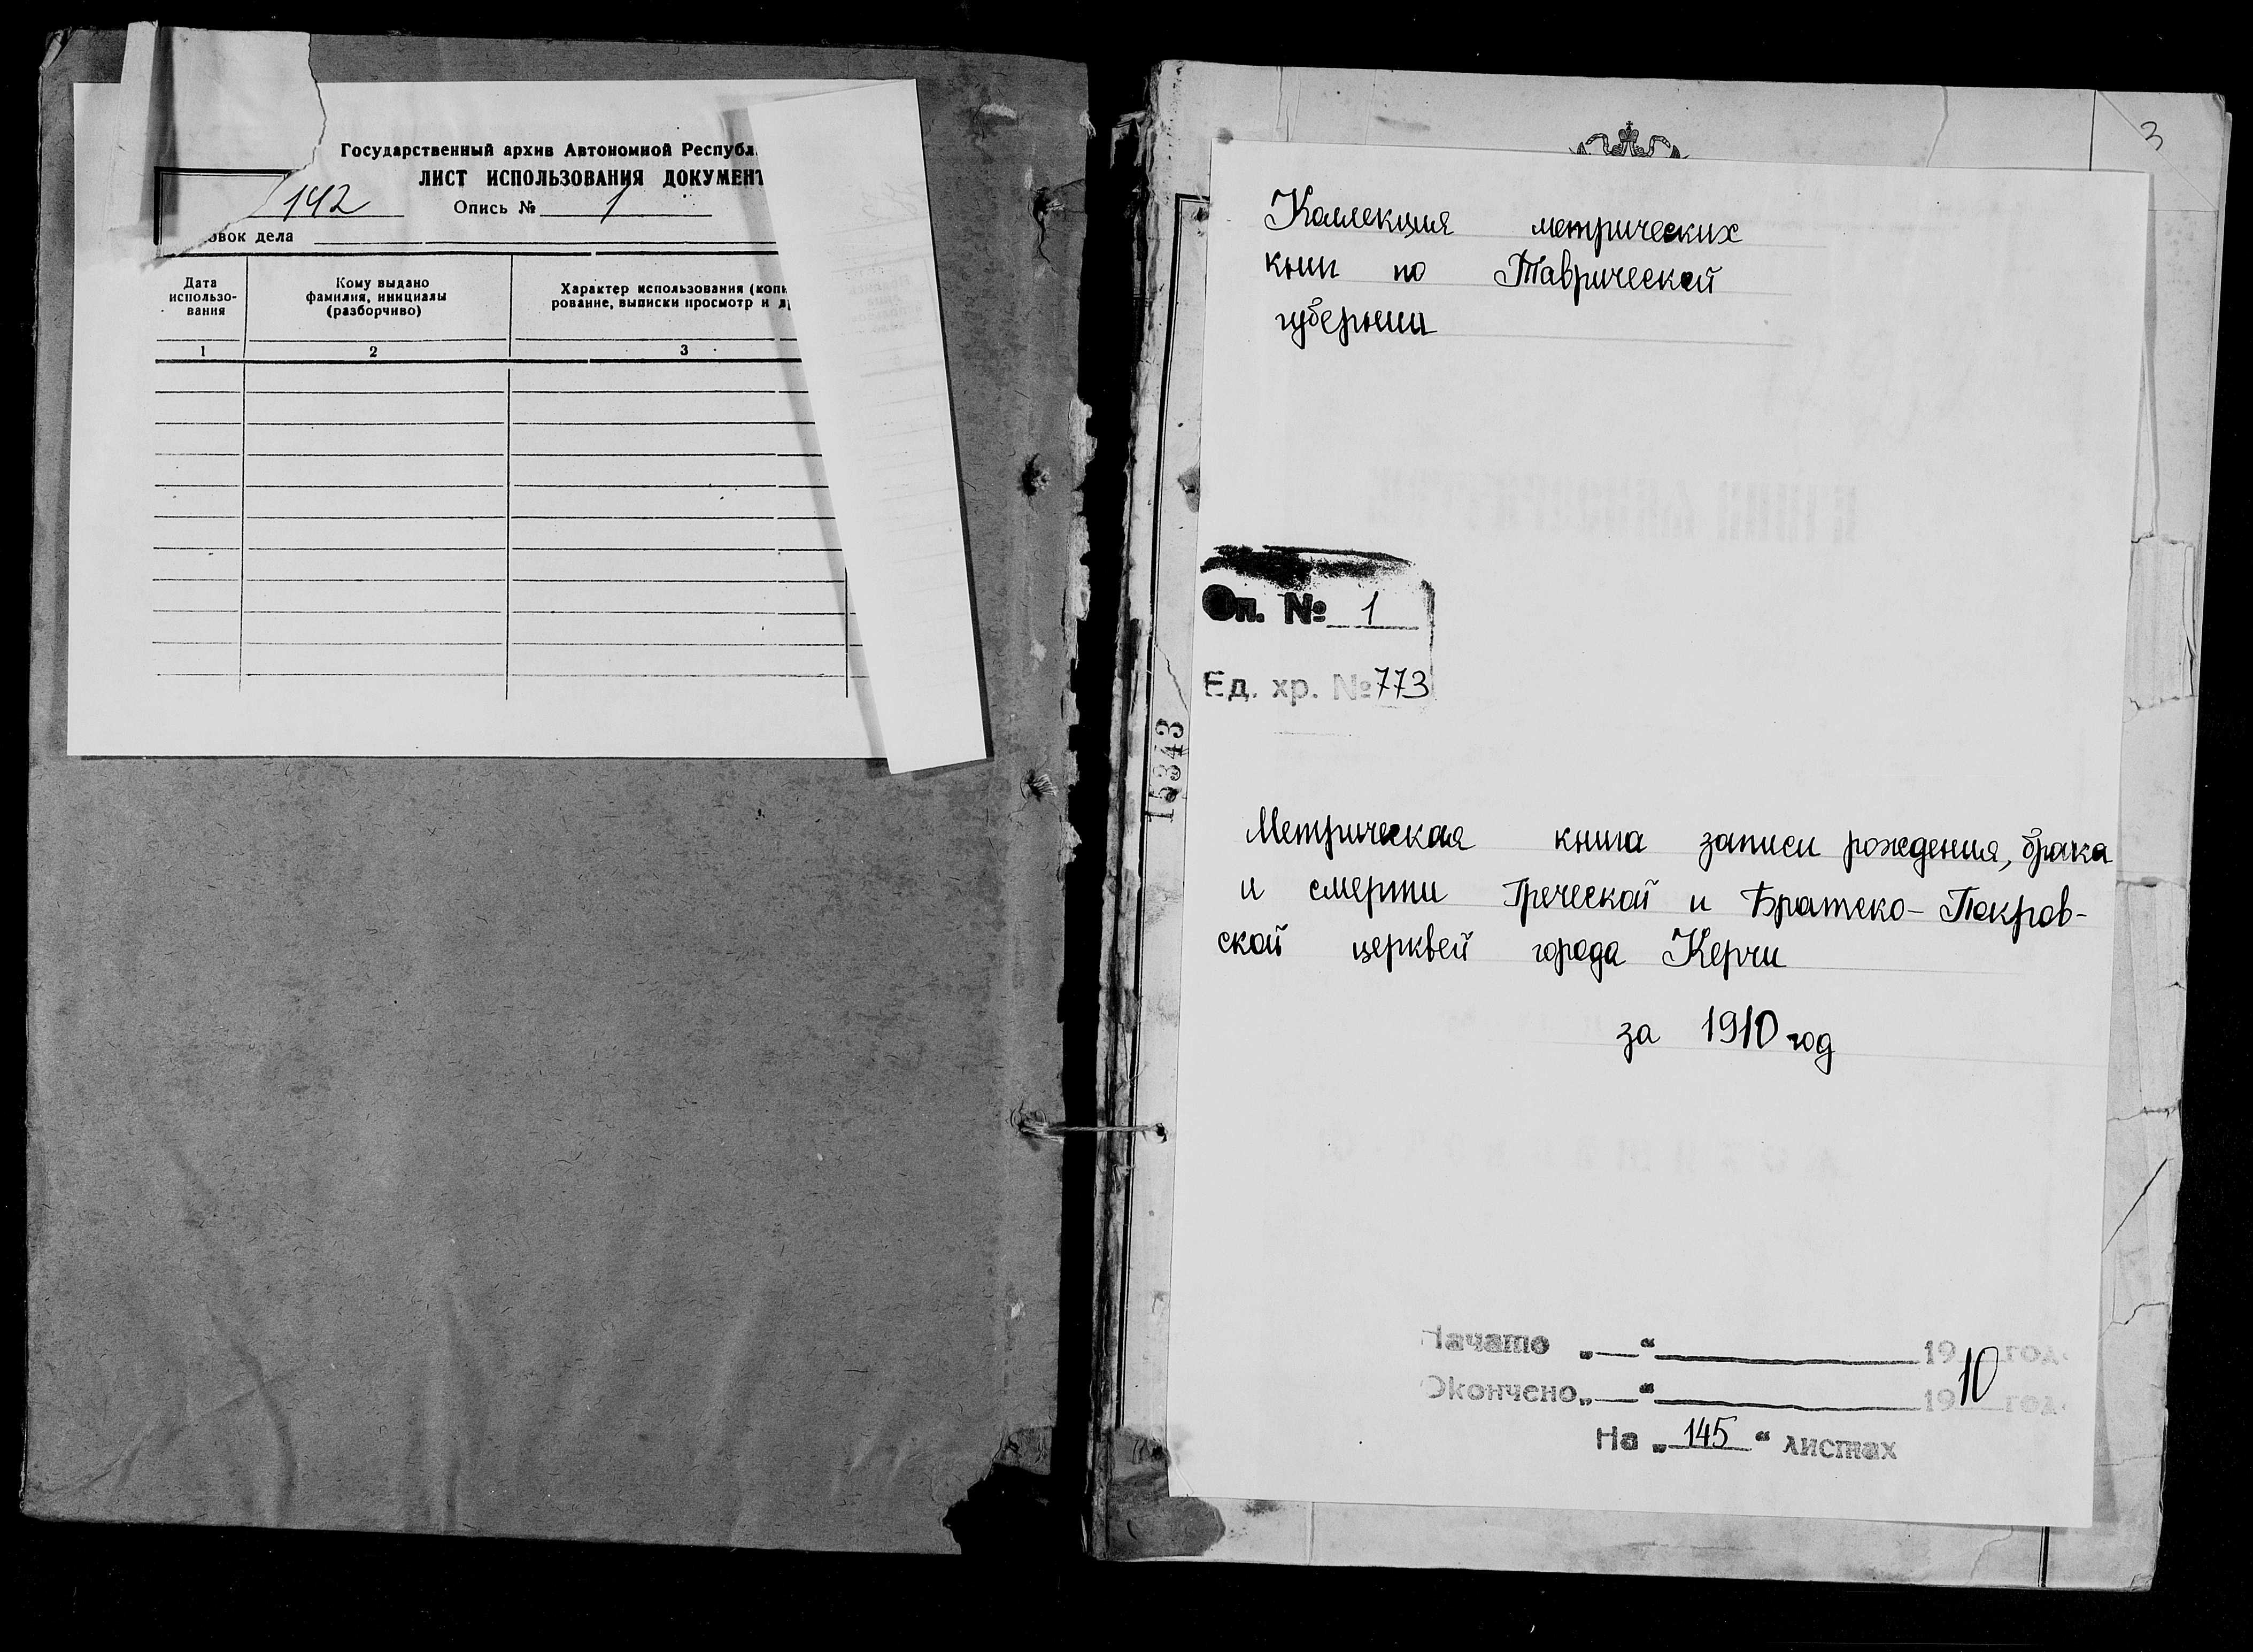 Государственный архив Автономной
ЛИСТ ИСПОЛЬЗОВАНИЯ
142 Опись № 1
дела
Дата использо-вания
Кому выдано фамилия, инициалы (разборчиво)
Характер использования (копи-рование, выписки просмотр и
1 2 3
3
Коллекция метрических
книг по Таврической
губернии
Оп. № 1
Ед. хр. № 773
15343
Метрическая книга записи рождения, брака
и смерти Греческой и Братско-Покров-
ской церквей города Керчи
за 1910 год
Начато „—“ 19 год
Окончено „—“ 1910 год
На „145“ листах